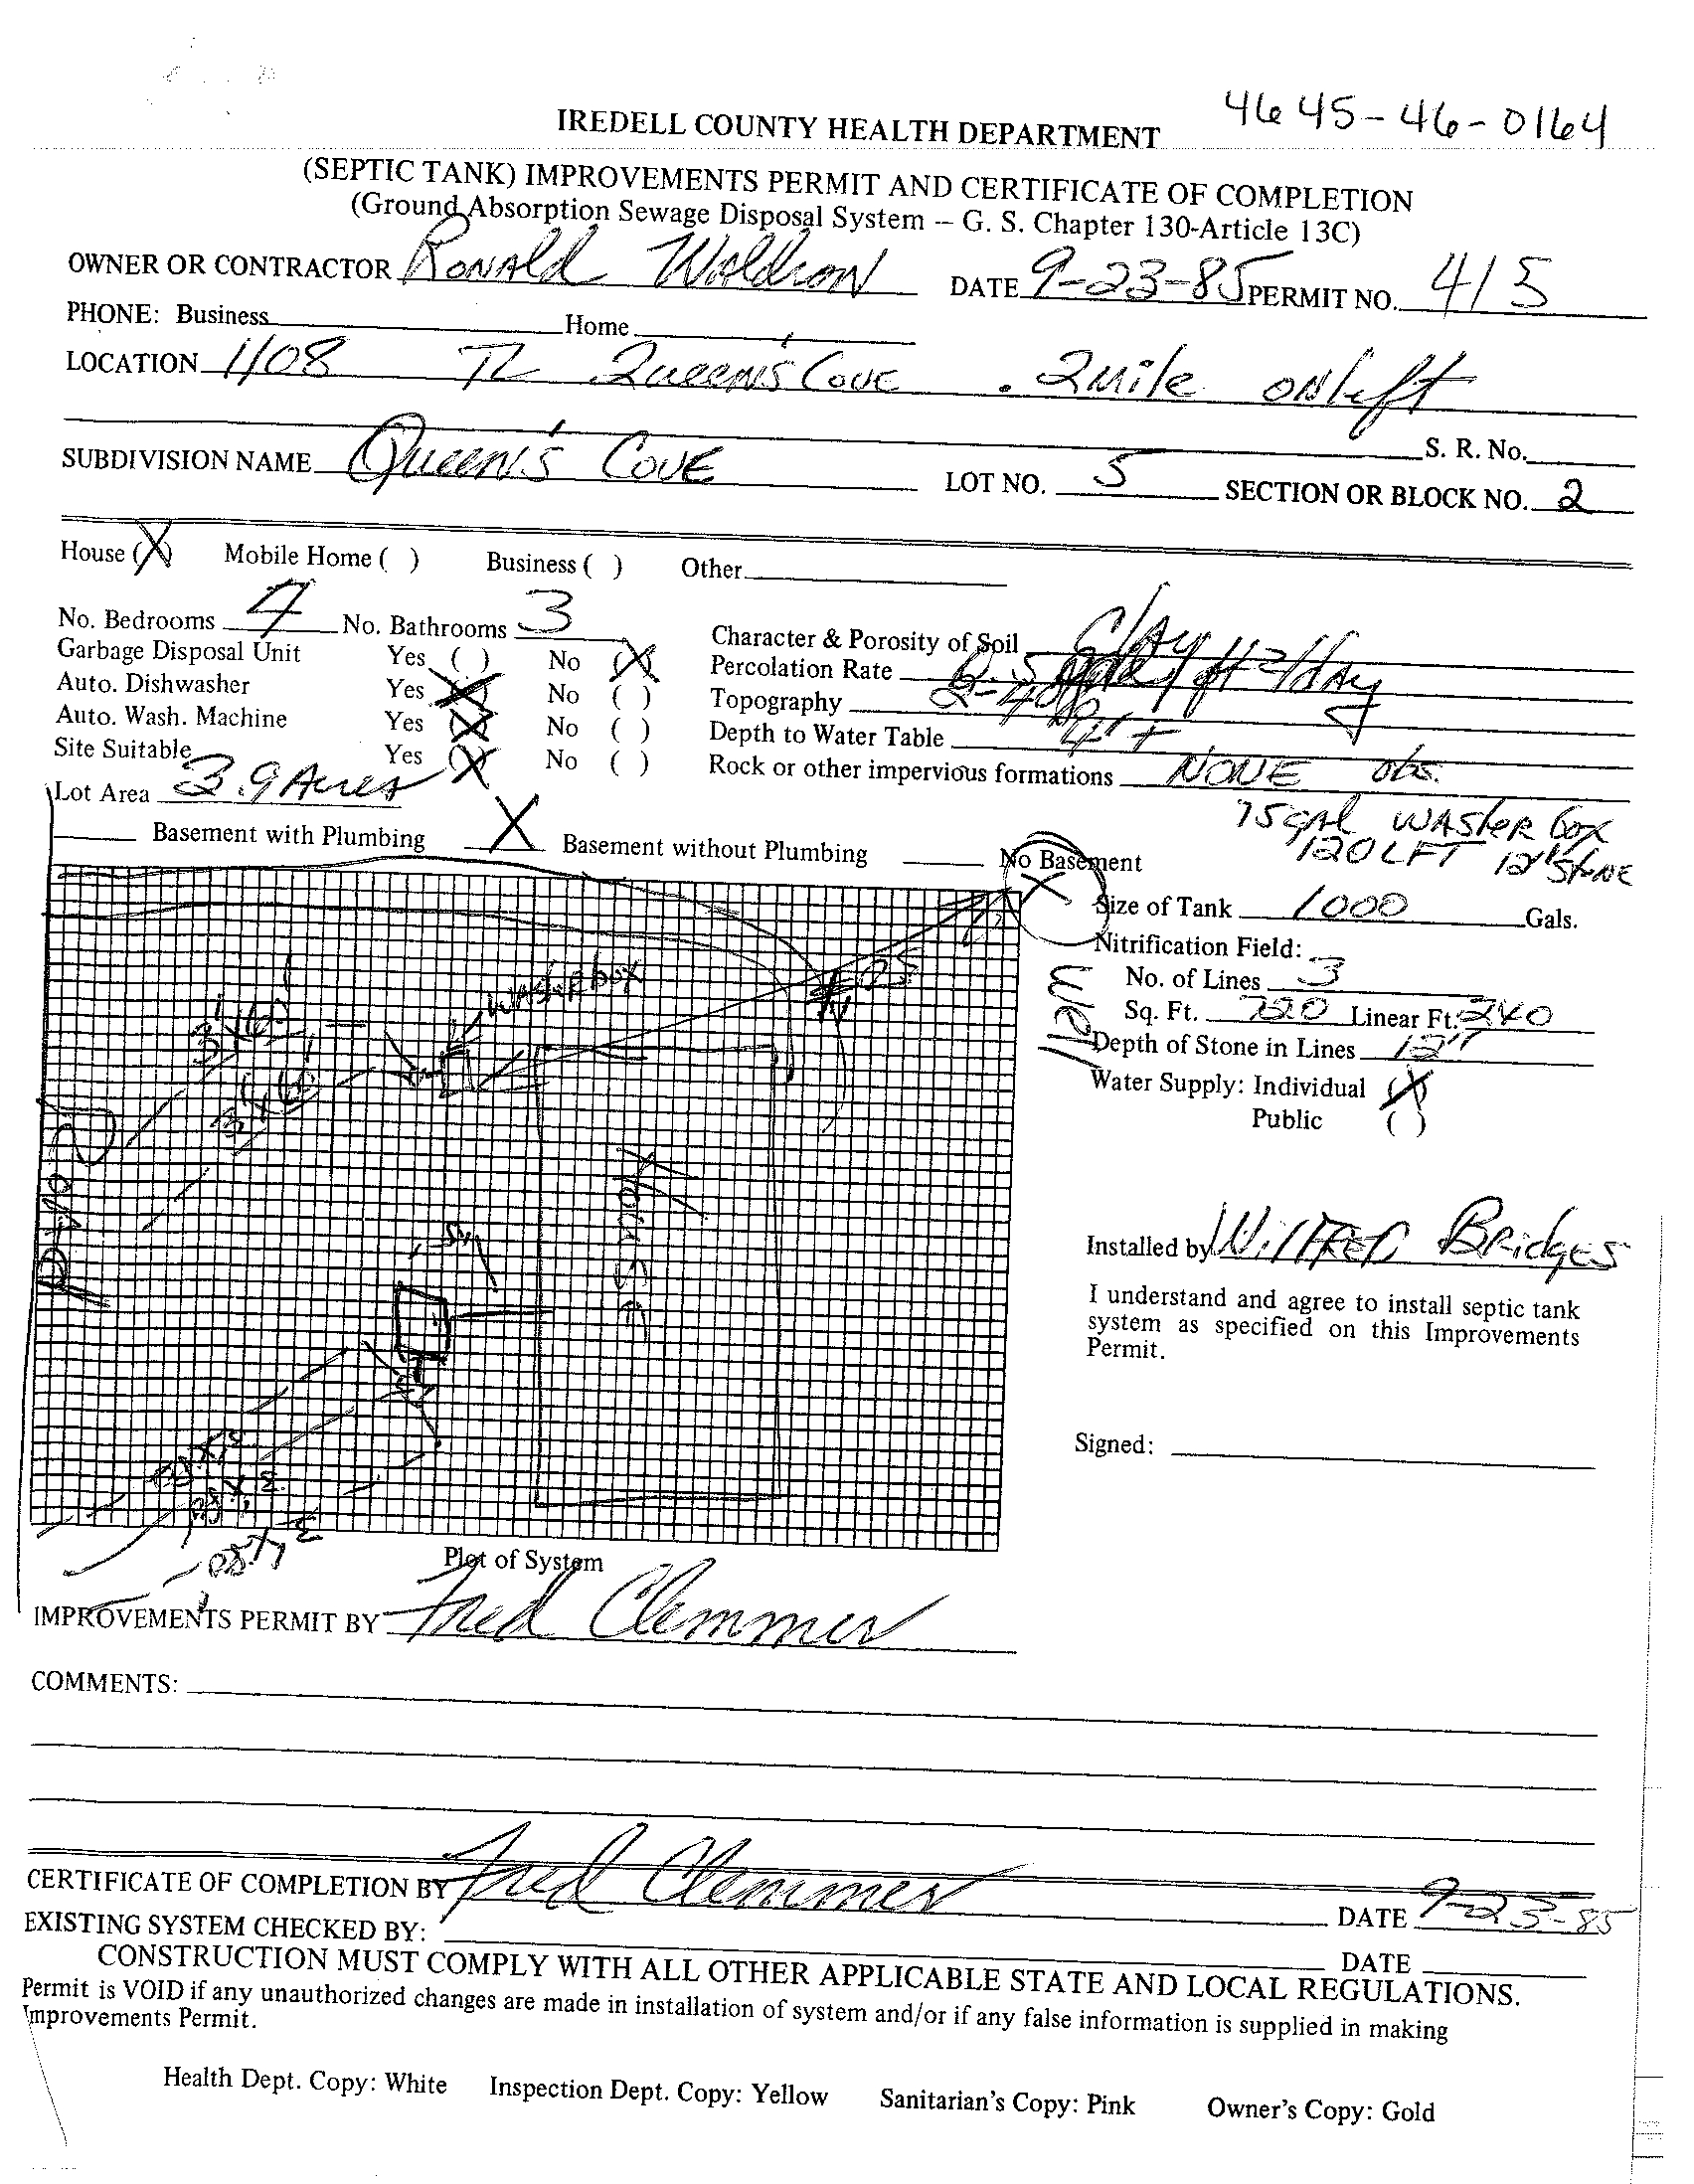 4645-46-0164
IREDELL COUNTY HEALTH DEPARTMENT
(SEPTIC TANK) IMPROVEMENTS PERMIT AND CERTIFICATE OF COMPLETION
(Ground Absorption Sewage Disposal System – G. S. Chapter 130-Article 13C)
OWNER OR CONTRACTOR Ronald Waldron DATE 9-23-85 PERMIT NO. 415
PHONE: Business Home
LOCATION 1108 TL Queen's Cove .2 mile on left
S. R. No.
SUBDIVISION NAME Queen's Cove LOT NO. 5 SECTION OR BLOCK NO. 2
House (X) Mobile Home ( ) Business ( ) Other
No. Bedrooms 4 No. Bathrooms 3
Garbage Disposal Unit Yes ( ) No (X)
Auto. Dishwasher Yes (X) No ( )
Auto. Wash. Machine Yes (X) No ( )
Site Suitable Yes (X) No ( )
Lot Area 3.9 Acres
Character & Porosity of Soil Clay
Percolation Rate
Topography
Depth to Water Table 4' +
Rock or other impervious formations NONE obs.
75 gal Waster box
120 LFT 12" Stone
Basement with Plumbing X Basement without Plumbing No Basement
Size of Tank 1000 Gals.
Nitrification Field:
No. of Lines 3
Sq. Ft. 720 Linear Ft. 240
Depth of Stone in Lines 12"
Water Supply: Individual (X)
Public ( )
Well
Waster box
House
Installed by Wilfred Bridges
I understand and agree to install septic tank
system as specified on this Improvements
Permit.
Signed:
Plot of System
IMPROVEMENTS PERMIT BY Fred Clemmer
COMMENTS:
CERTIFICATE OF COMPLETION BY Fred Clemmer DATE 9-23-85
EXISTING SYSTEM CHECKED BY: DATE
CONSTRUCTION MUST COMPLY WITH ALL OTHER APPLICABLE STATE AND LOCAL REGULATIONS.
Permit is VOID if any unauthorized changes are made in installation of system and/or if any false information is supplied in making
Improvements Permit.
Health Dept. Copy: White Inspection Dept. Copy: Yellow Sanitarian's Copy: Pink Owner's Copy: Gold